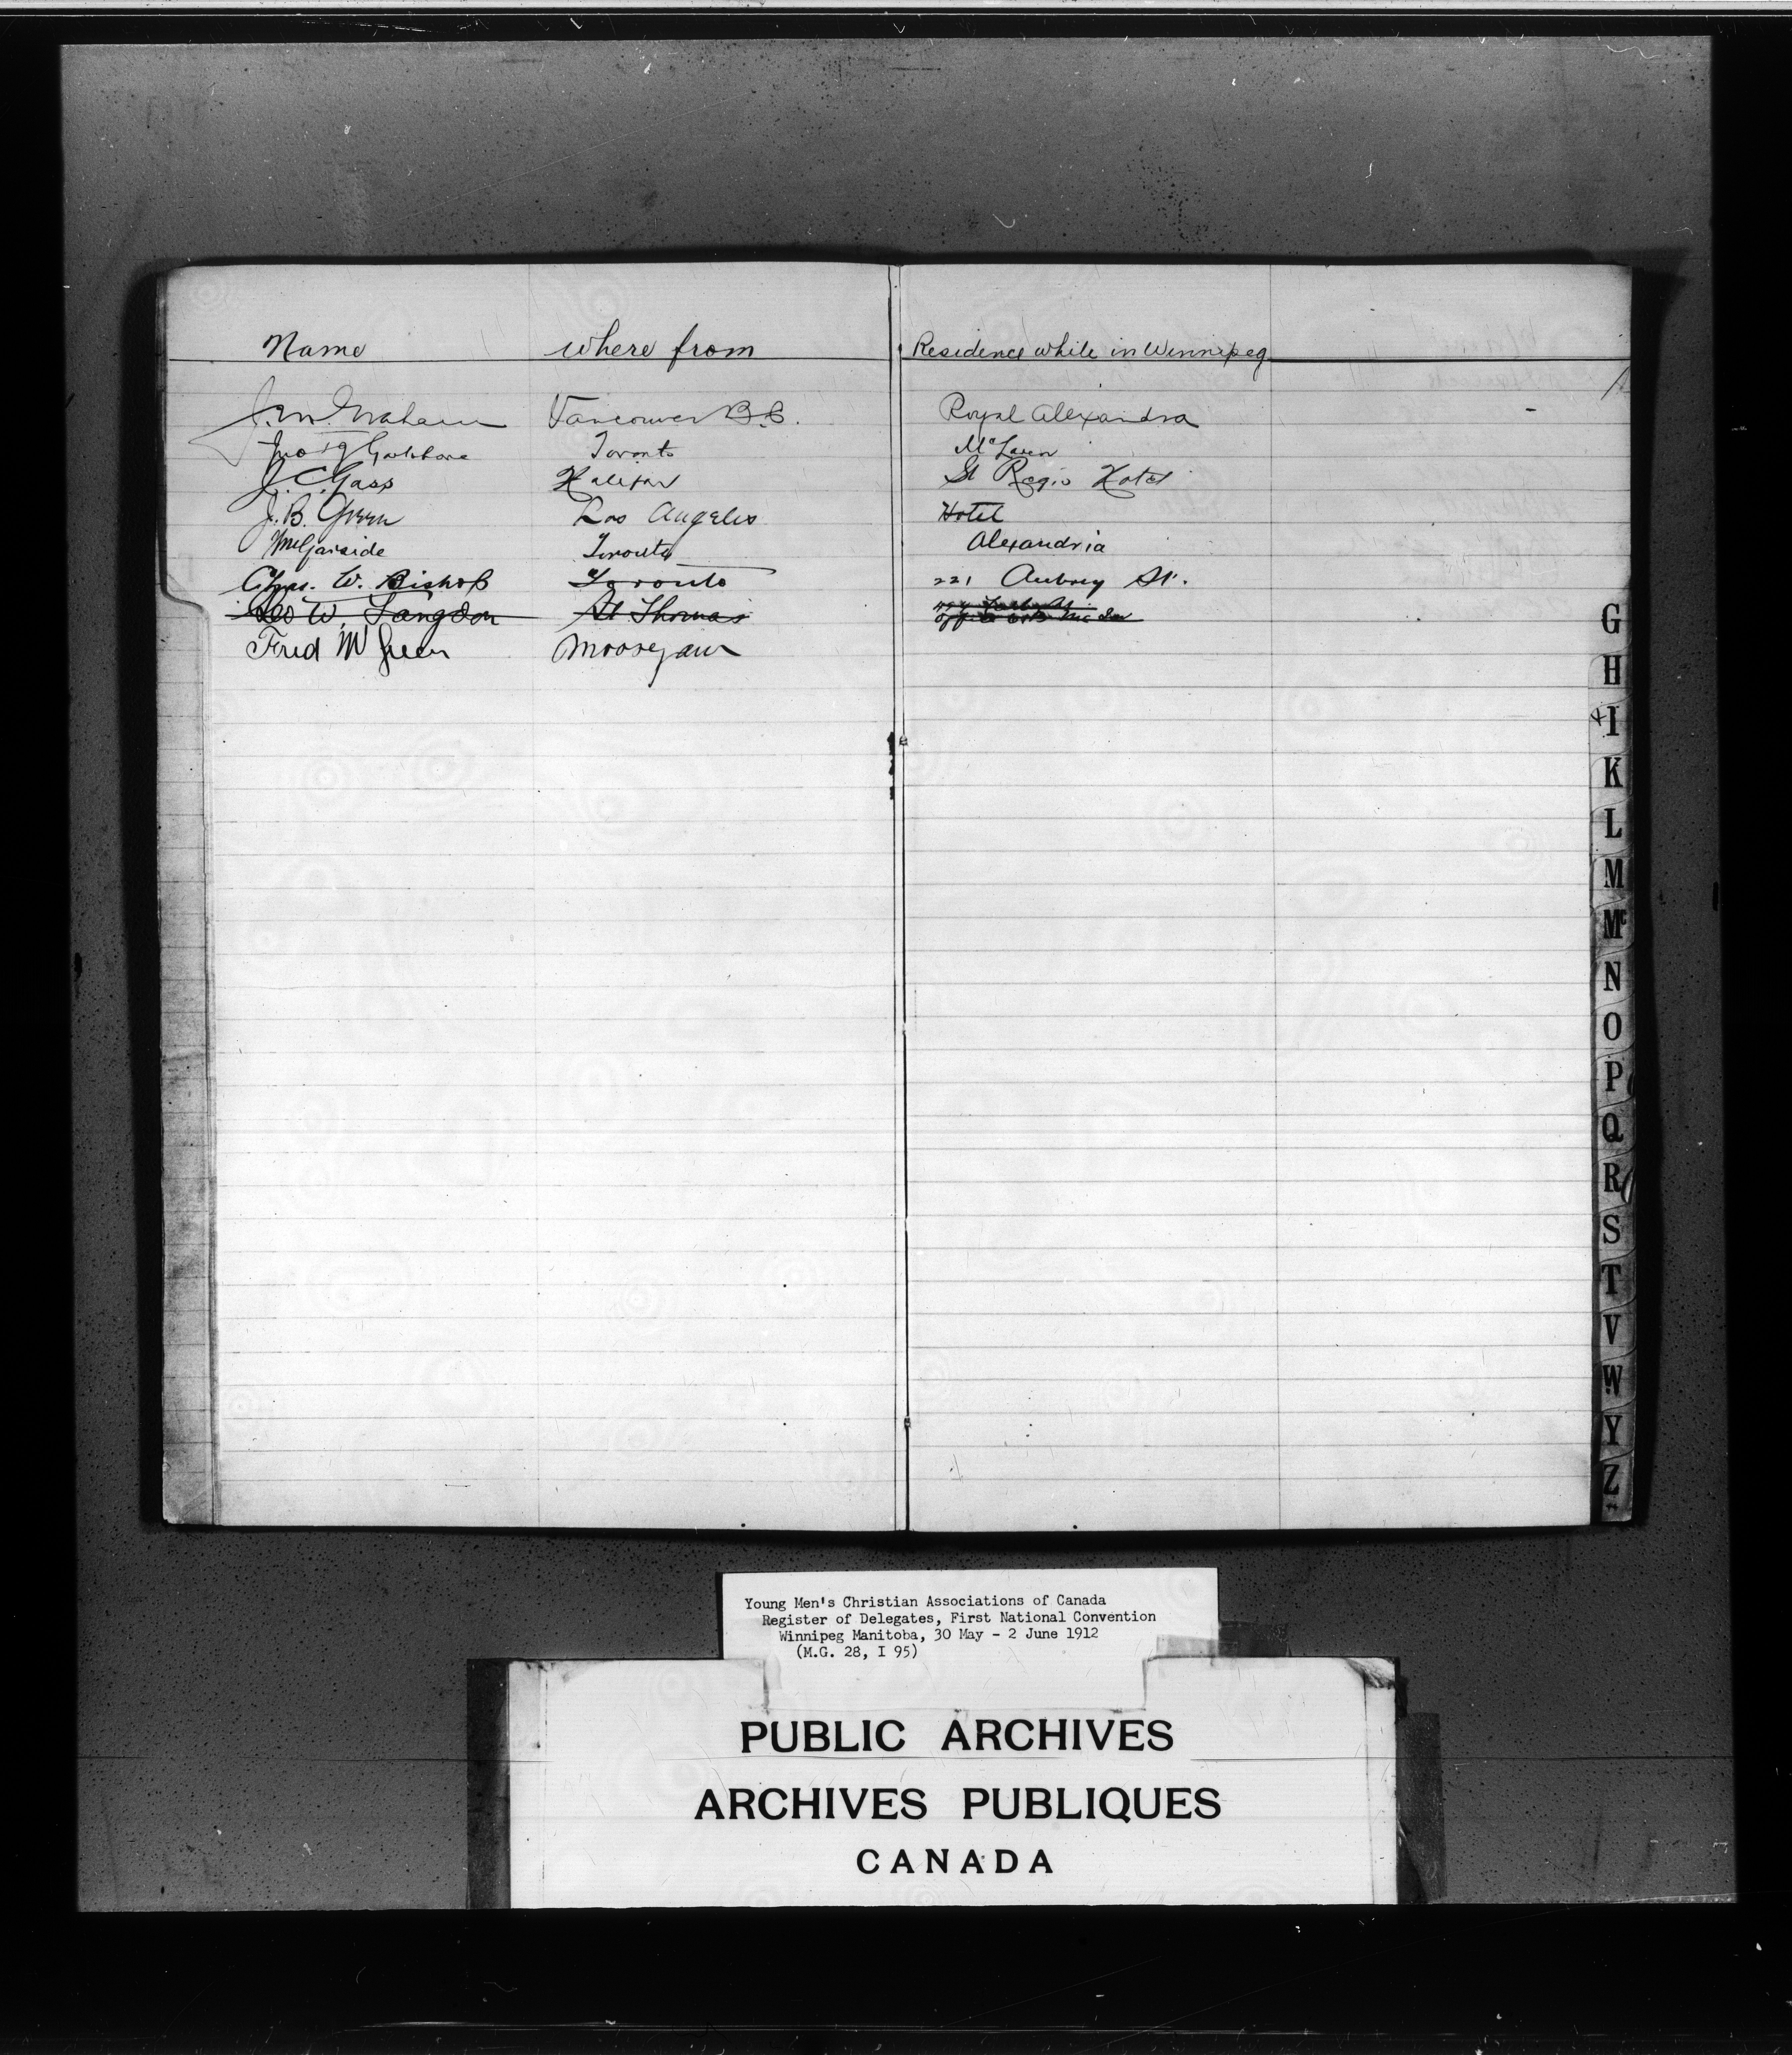 Name where from Residence while in Winnipeg
J. M. Graham Vancouver B.C. Royal Alexandra
Toronto McLaren
J. C. Gass Halifax St Regis Hotel
J. B. Green Los Angeles Hotel
Wm Garside Toronto Alexandria
Chas. W. Bishop Toronto 221 Aubrey St.
Geo W. Langdon St Thomas
Fred W Green Moosejaw
G
H
I
K
L
M
Mc
N
O
P
Q
R
S
T
V
W
Y
Z
Young Men's Christian Associations of Canada
Register of Delegates, First National Convention
Winnipeg Manitoba, 30 May - 2 June 1912
(M.G. 28, I 95)
PUBLIC ARCHIVES
ARCHIVES PUBLIQUES
CANADA